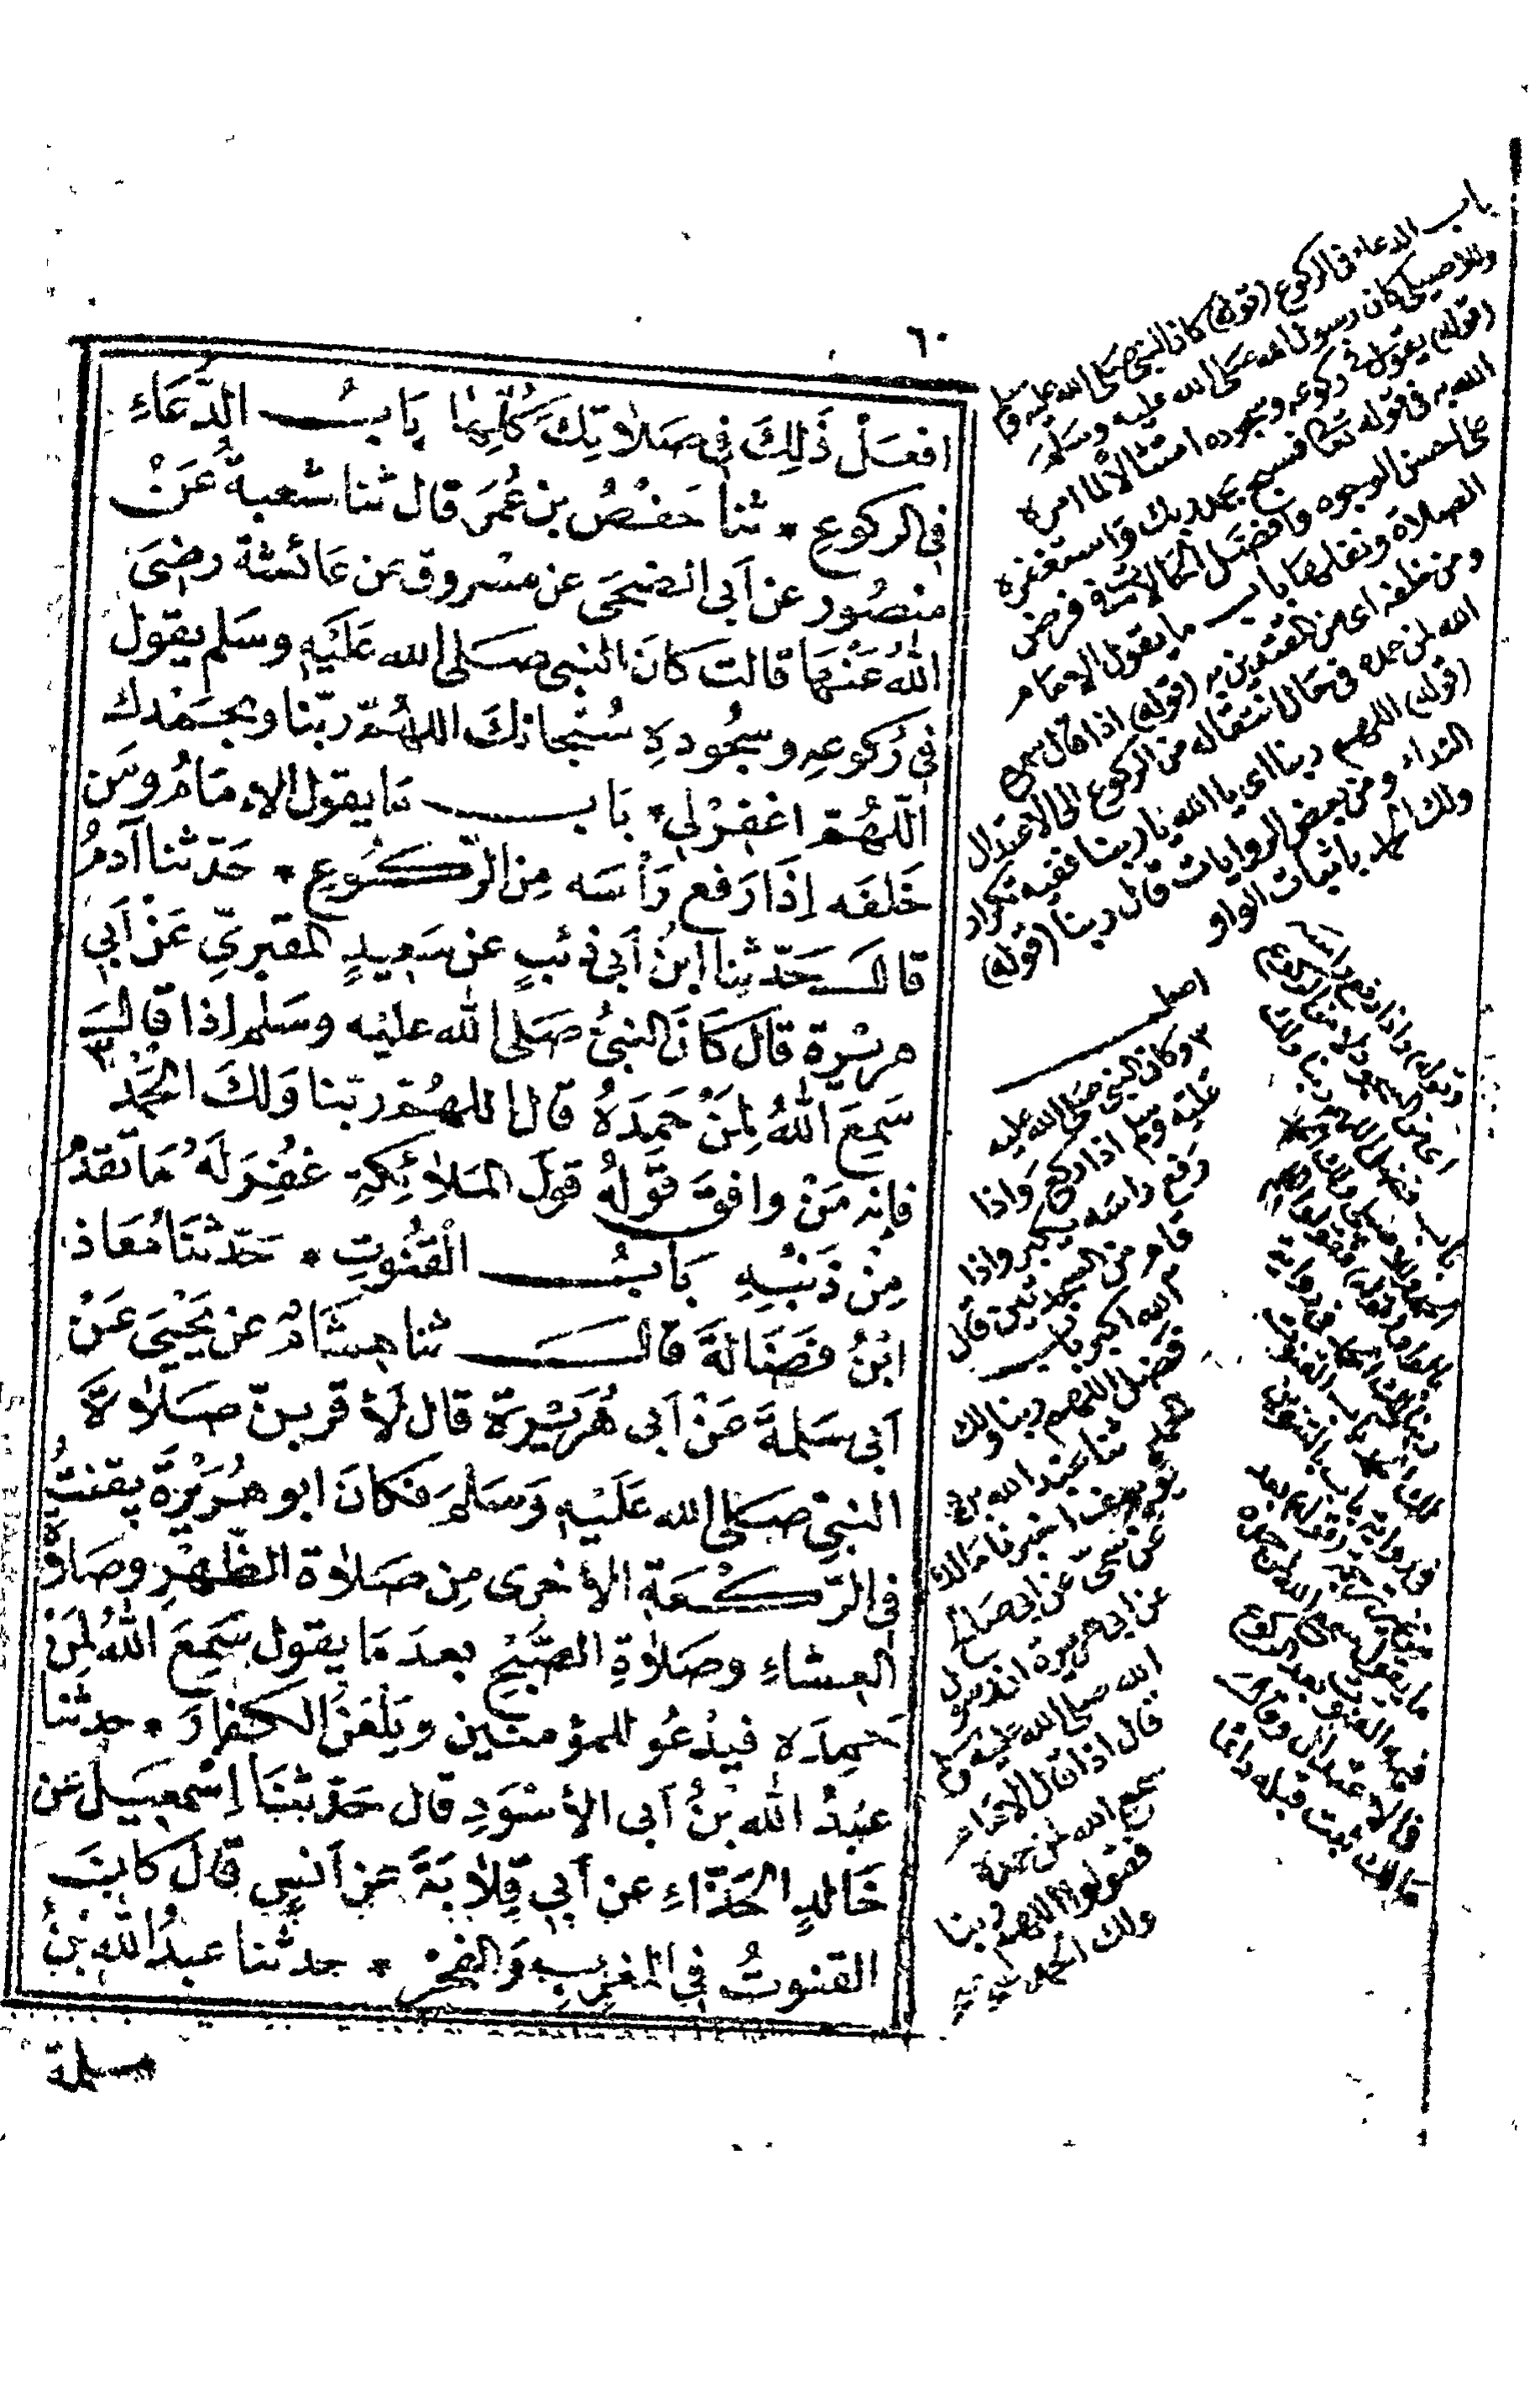 ٦٠
افعَلْ ذَلِكَ فِي صَلاَتِكَ كُلِّهَا بَابُ الدُّعَاءِ
فِي الركوعِ * ثنا حَفْصُ بن عُمَرَ قال ثنا شعبةُ عَنْ
منصُور عن أبي الضحَى عن مسْروق عن عَائشة رضِىَ
اللهُ عَنْهَا قالت كانَ النبى صَلى الله عَلَيْهِ وسَلم يقول
فِي رُكوعِهِ وسجُودهِ سُبْحانكَ اللهُمّ ربّنا وبحَمْدك
اللّهُمّ اغفِرْلِي * بَاب مَا يقول الإمَامُ ومَن
خَلفَه إذَا رَفع رَأسَه مِن الرّكُوعِ * حَدّثنا آدمُ
قال حَدّثنا ابنُ أبى ذئبٍ عن سَعِيدٍ المقبريّ عَنْ أبي
هريْرة قال كَانَ النبىُّ صَلى الله عليْه وسَلم إذا قال
سَمِعَ اللهُ لِمَنْ حَمِدَهُ قال اللهُمّ ربّنا وَلكَ الحَمْدُ ٣
فإنه مَنْ وافقَ قَولُهُ قولَ المَلائِكةِ غُفِرَلَهُ مَا تقدّمَ
مِنْ ذَنْبِهِ بَابُ الْقُنُوتِ * حَدّثنَا مُعَاذ
ابْنُ فَضَالةَ قال ثنا هِشَامٌ عن يَحْيَى عَنْ
أبى سَلمةَ عَنْ أبى هُرَيْرة قال لأُ قرّبنّ صَلاةَ
النبيّ صَلى الله عَلَيْهِ وَسَلمَ فكانَ ابو هُرَيْرَةَ يقنتُ
في الرّكْعَةِ الأخرى مِن صَلاة الظّهْرِ وصَلاةِ
العِشاءِ وصَلاةِ الصّبْحِ بعدَ مَا يقول سَمِعَ اللهُ لِمَنْ
حَمِدَه فيدْعُو للمؤمنين ويَلْعَنُ الكفارَ * حدثنا
عبْدُ الله بْنُ أبى الأسْوَدِ قال حَدّثنَا إسْمعِيلُ عن
خَالدٍ الحَذّاءِ عن أبي قِلابَةَ عن أنسٍ قال كانَ
القنوتُ فِي المَغرِبِ وَالفجْرِ * حدثنا عبدُ الله بْنُ
مسلمة
باب الدعاء فى الركوع (قوله) كان النبى صلى الله عليه وسلم
وللاصيلى كان رسول الله صلى الله عليه وسلم
(قوله) يقول فى ركوعه وسجوده امتثالا لما امره
الله به فى قوله تعالى فسبح بحمد ربك واستغفره
على احسن الوجوه وافضل الحالات فى فرض
الصلاة ونفلها باب ما يقول الإمام
ومن خلفه اى من المقتدين به (قوله) اذا قال سمع
الله لمن حمده فى حال انتقاله من الركوع الى الاعتدال
(قوله) اللهم ربنا اى يا الله يا ربنا ففيه تكرار
النداء ومن بعض الروايات قال ربنا (قوله)
ولك الحمد باثبات الواو
اصل
٣ وكان النبى صلى الله عليه
عليه وسلم اذا ركع واذا
رفع راسه يكبر واذا
قام من السجدتين قال
الله اكبر باب
فضل اللهم ربنا ولك
الحمد ثنا عبد الله بن
يوسف اخبرنا مالك
عن سمى عن ابى صالح
عن ابى هريرة ان رسول
الله صلى الله عليه وسلم
قال اذا قال الامام
سمع الله لمن حمده
فقولوا اللهم ربنا
ولك الحمد
(قوله) واذا رفع راسه
اى من السجود لا من الركوع
باب فضل اللهم ربنا ولك
الحمد
ما يقول سمع الله لمن حمده
فيه القنوت بعد الركوع
فى الاعتدال وقال
مالك يقنت قبله دائما